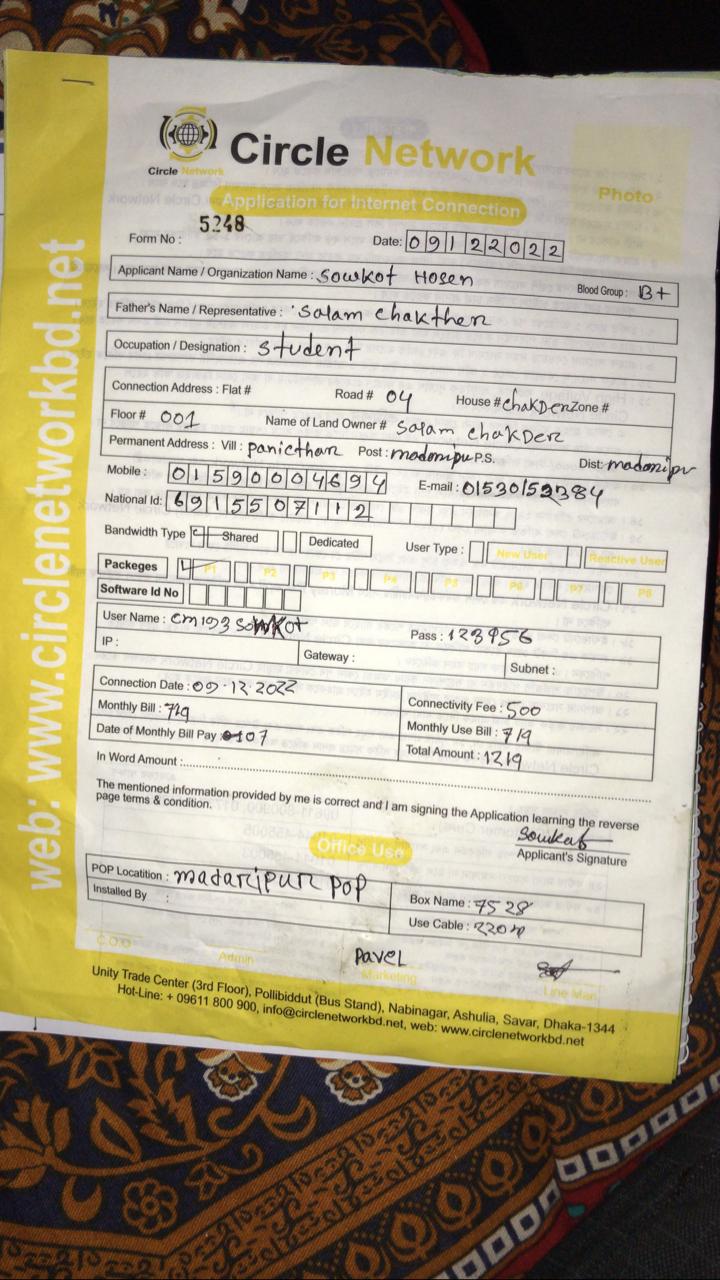 Circle Network
Circle Network
Application for Internet Connection
Photo
Form No : 5248
Date: 09122022
Applicant Name / Organization Name : Sowkot Hosen
Blood Group : B+
Father's Name / Representative : Salam chakther
Occupation / Designation : Student
Connection Address : Flat # Road # 04 House # chakDer Zone #
Floor # 001 Name of Land Owner # Salam chakDer
Permanent Address : Vill : panicthar Post : madaripur P.S. Dist: madaripur
Mobile : 01590004694 E-mail : 01530152384
National Id: 6915507112
Bandwidth Type Shared Dedicated User Type : New User Reactive User
Packeges P1 P2 P3 P4 P5 P6 P7 P8
Software Id No
User Name : Pass :
IP : Gateway : Subnet :
Connection Date : 09.12.2022 Connectivity Fee : 500
Monthly Bill : 719 Monthly Use Bill : 719
Date of Monthly Bill Pay : 07 Total Amount : 1219
In Word Amount :
The mentioned information provided by me is correct and I am signing the Application learning the reverse
page terms & condition.
Sowkat
Applicant's Signature
Office Use
POP Locatition : madaripur pop Box Name : 7528
Installed By : Use Cable : 220 m
C.O.O Admin Pavel Marketing Line Man
Unity Trade Center (3rd Floor), Pollibiddut (Bus Stand), Nabinagar, Ashulia, Savar, Dhaka-1344
Hot-Line: + 09611 800 900, info@circlenetworkbd.net, web: www.circlenetworkbd.net
web: www.circlenetworkbd.net